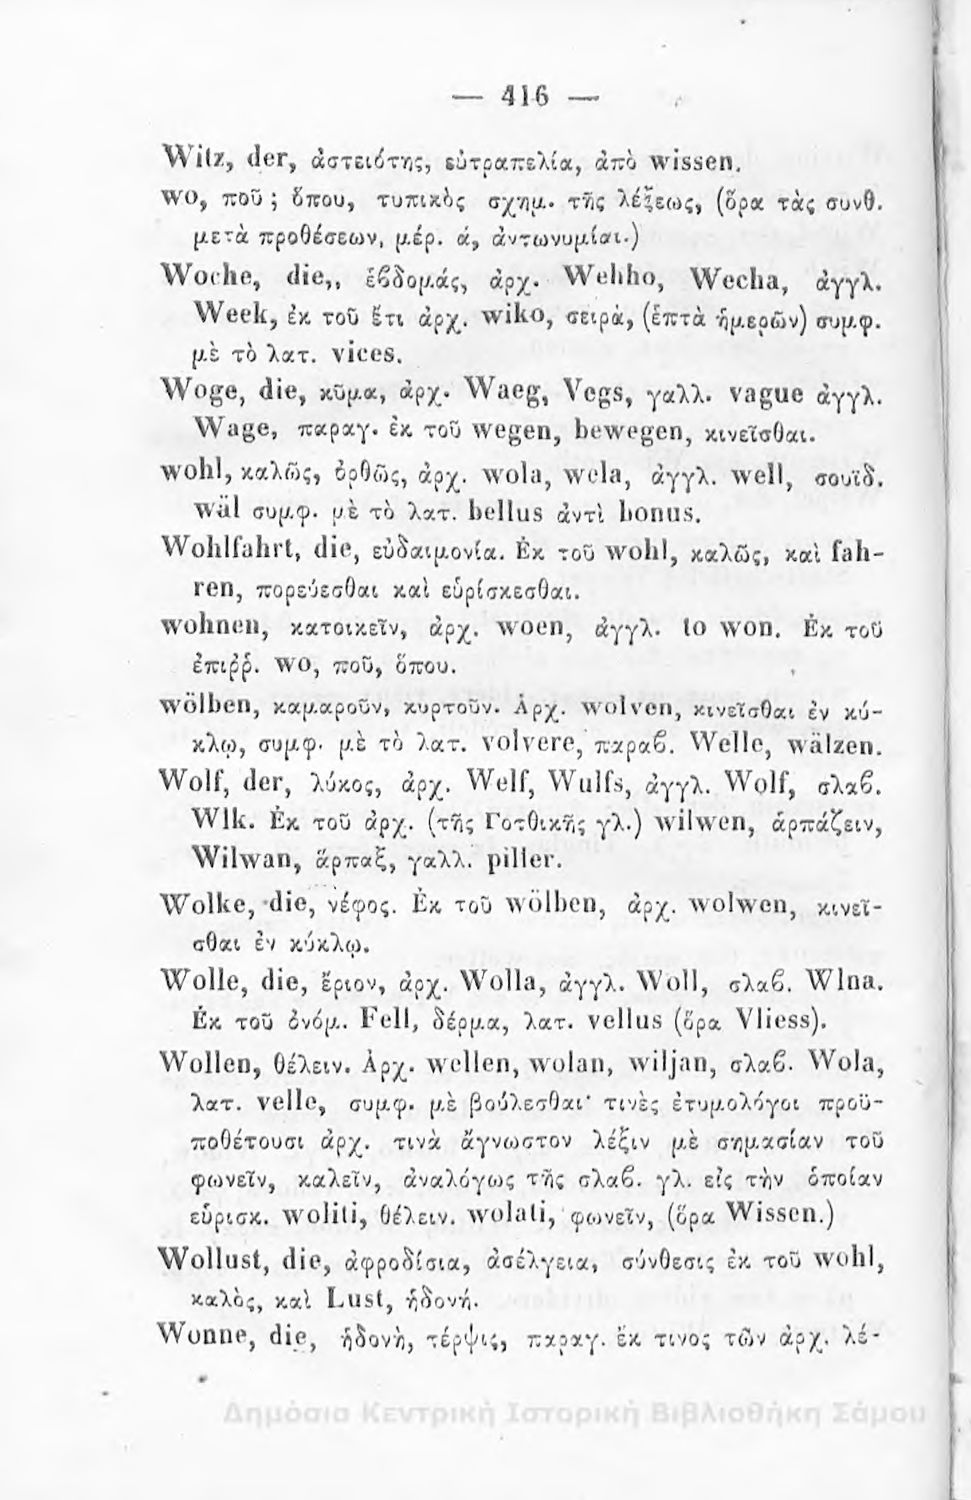 — 416 —
Witz, der, ἀστειότης, εὐτραπελία, ἀπὸ wissen.
wo, ποῦ; ὅπου, τυπικὸς σχημ. τῆς λέξεως, (ὅρα τὰς συνθ.
μετὰ προθέσεων, μέρ. ά, ἀντωνυμίαι.)
Woche, die,, ἑβδομάς, ἀρχ. Wehho, Wecha, ἀγγλ.
Week, ἐκ τοῦ ἔτι ἀρχ. wiko, σειρὰ, (ἑπτὰ ἡμερῶν) συμφ.
μὲ τὸ λατ. vices.
Woge, die, κῦμα, ἀρχ. Waeg, Vegs, γαλλ. vague ἀγγλ.
Wage, παραγ. ἐκ τοῦ wegen, bewegen, κινεῖσθαι.
wohl, καλῶς, ὀρθῶς, ἀρχ. wola, wela, ἀγγλ. well, σουϊδ.
wäl συμφ. μὲ τὸ λατ. bellus ἀντὶ bonus.
Wohlfahrt, die, εὐδαιμονία. Ἐκ τοῦ wohl, καλῶς, καὶ fah-
ren, πορεύεσθαι καὶ εὑρίσκεσθαι.
wohnen, κατοικεῖν, ἀρχ. woen, ἀγγλ. to won. Ἐκ τοῦ
ἐπιῤῥ. wo, ποῦ, ὅπου.
wölben, καμαροῦν, κυρτοῦν. Ἀρχ. wolven, κινεῖσθαι ἐν κύ-
κλῳ, συμφ. μὲ τὸ λατ. volvere, παραβ. Welle, wälzen.
Wolf, der, λύκος, ἀρχ. Welf, Wulfs, ἀγγλ. Wolf, σλαβ.
Wlk. Ἐκ τοῦ ἀρχ. (τῆς Γοτθικῆς γλ.) wilwen, ἁρπάζειν,
Wilwan, ἅρπαξ, γαλλ. piller.
Wolke, die, νέφος. Ἐκ τοῦ wölben, ἀρχ. wolwen, κινεῖ-
σθαι ἐν κύκλῳ.
Wolle, die, ἔριον, ἀρχ. Wolla, ἀγγλ. Woll, σλαβ. Wlna.
Ἐκ τοῦ ὀνόμ. Fell, δέρμα, λατ. vellus (ὅρα Vliess).
Wollen, θέλειν. Ἀρχ. wellen, wolan, wiljan, σλαβ. Wola,
λατ. velle, συμφ. μὲ βούλεσθαι· τινὲς ἐτυμολόγοι προϋ-
ποθέτουσι ἀρχ. τινὰ ἄγνωστον λέξιν μὲ σημασίαν τοῦ
φωνεῖν, καλεῖν, ἀναλόγως τῆς σλαβ. γλ. εἰς τὴν ὁποίαν
εὑρισκ. woliti, θέλειν. wolati, φωνεῖν, (ὅρα Wissen.)
Wollust, die, ἀφροδίσια, ἀσέλγεια, σύνθεσις ἐκ τοῦ wohl,
καλὸς, καὶ Lust, ἡδονή.
Wonne, die, ἡδονὴ, τέρψις, παραγ. ἔκ τινος τῶν ἀρχ. λέ-
Δημόσια Κεντρική Ιστορική Βιβλιοθήκη Σάμου